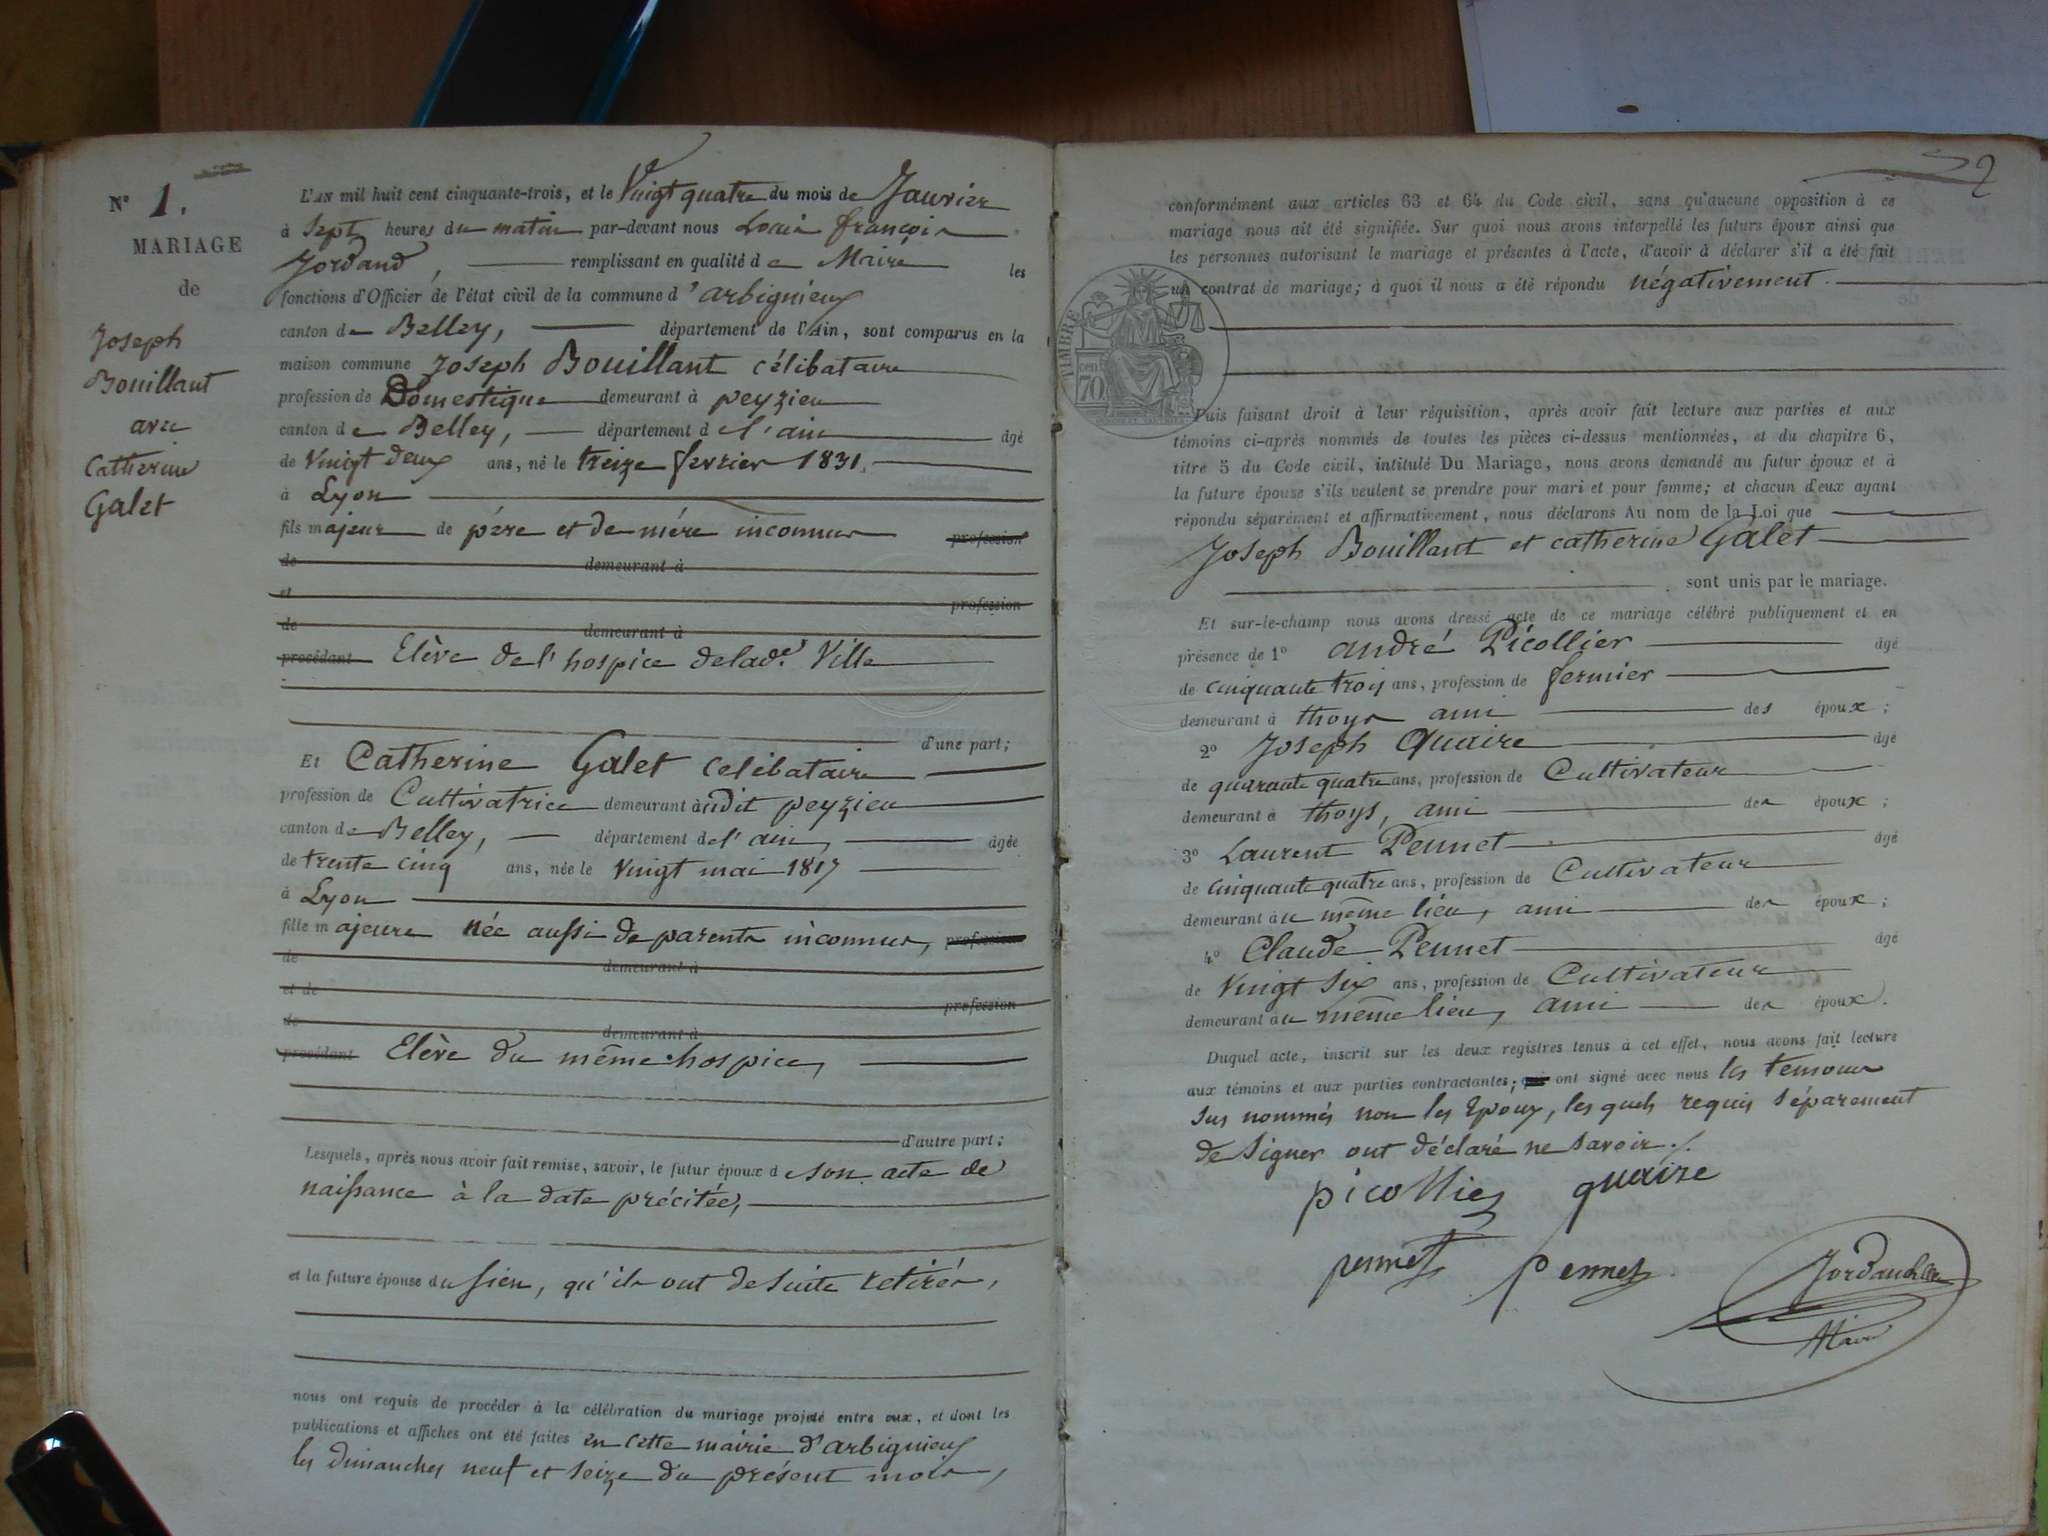 N° 1.
MARIAGE
de
Joseph
Bouillant
avec
Catherine
Galet
L'AN mil huit cent cinquante-trois, et le Vingt quatre du mois de Janvier
à Sept heures du matin par-devant nous Louis françois
Jordand, remplissant en qualité de Maire les
fonctions d'Officier de l'état civil de la commune d'arbignieux
canton de Belley, département de l'Ain, sont comparus en la
maison commune Joseph Bouillant célibataire
profession de Domestique demeurant à peyzieu
canton de Belley, département de l'ain âgé
de Vingt deux ans, né le treize fevrier 1831,
à Lyon
fils majeur de père et de mére inconnus profession
de demeurant à
et profession
de demeurant à
procédant Elève de l'hospice de lade. Ville
d'une part;
Et Catherine Galet celibataire
profession de Cultivatrice demeurant audit peyzieu
canton de Belley, département de l'ain, âgée
de trente cinq ans, née le vingt mai 1817
à Lyon
fille majeure née aussi de parents inconnus, profession
de demeurant à
et de profession
de demeurant à
procédant Elève du même hospice,
d'autre part;
Lesquels, après nous avoir fait remise, savoir, le futur époux de son acte de
naissance à la date précitée,
et la future épouse du sien, qu'ils ont de suite retirés,
nous ont requis de procéder à la célébration du mariage projeté entre eux, et dont les
publications et affiches ont été faites en cette mairie d'arbignieux
les dimanches neuf et seize du présent mois,
2
conformément aux articles 63 et 64 du Code civil, sans qu'aucune opposition à ce
mariage nous ait été signifiée. Sur quoi nous avons interpellé les futurs époux ainsi que
les personnes autorisant le mariage et présentes à l'acte, d'avoir à déclarer s'il a été fait
un contrat de mariage; à quoi il nous a été répondu négativement.
TIMBRE
70 cen
Puis faisant droit à leur réquisition, après avoir fait lecture aux parties et aux
témoins ci-après nommés de toutes les pièces ci-dessus mentionnées, et du chapitre 6,
titre 5 du Code civil, intitulé Du Mariage, nous avons demandé au futur époux et à
la future épouse s'ils veulent se prendre pour mari et pour femme; et chacun d'eux ayant
répondu séparément et affirmativement, nous déclarons Au nom de la Loi que
Joseph Bouillant et catherine Galet
sont unis par le mariage.
Et sur-le-champ nous avons dressé acte de ce mariage célébré publiquement et en
présence de 1° andré Picollier âgé
de cinquante trois ans, profession de fermier
demeurant à thoys ami des époux;
2° Joseph Quaire âgé
de quarante quatre ans, profession de Cultivateur
demeurant à thoys, ami des époux;
3° Laurent Pennet âgé
de cinquante quatre ans, profession de Cultivateur
demeurant au même lieu, ami des époux;
4° Claude Pennet âgé
de Vingt six ans, profession de Cultivateur
demeurant au même lieu, ami des époux.
Duquel acte, inscrit sur les deux registres tenus à cet effet, nous avons fait lecture
aux témoins et aux parties contractantes; qui ont signé avec nous les temoins
sus nommés non les Epoux, lesquels requis séparement
de signer ont déclaré ne savoir./.
picollier quaire
pennet pennet
Maire